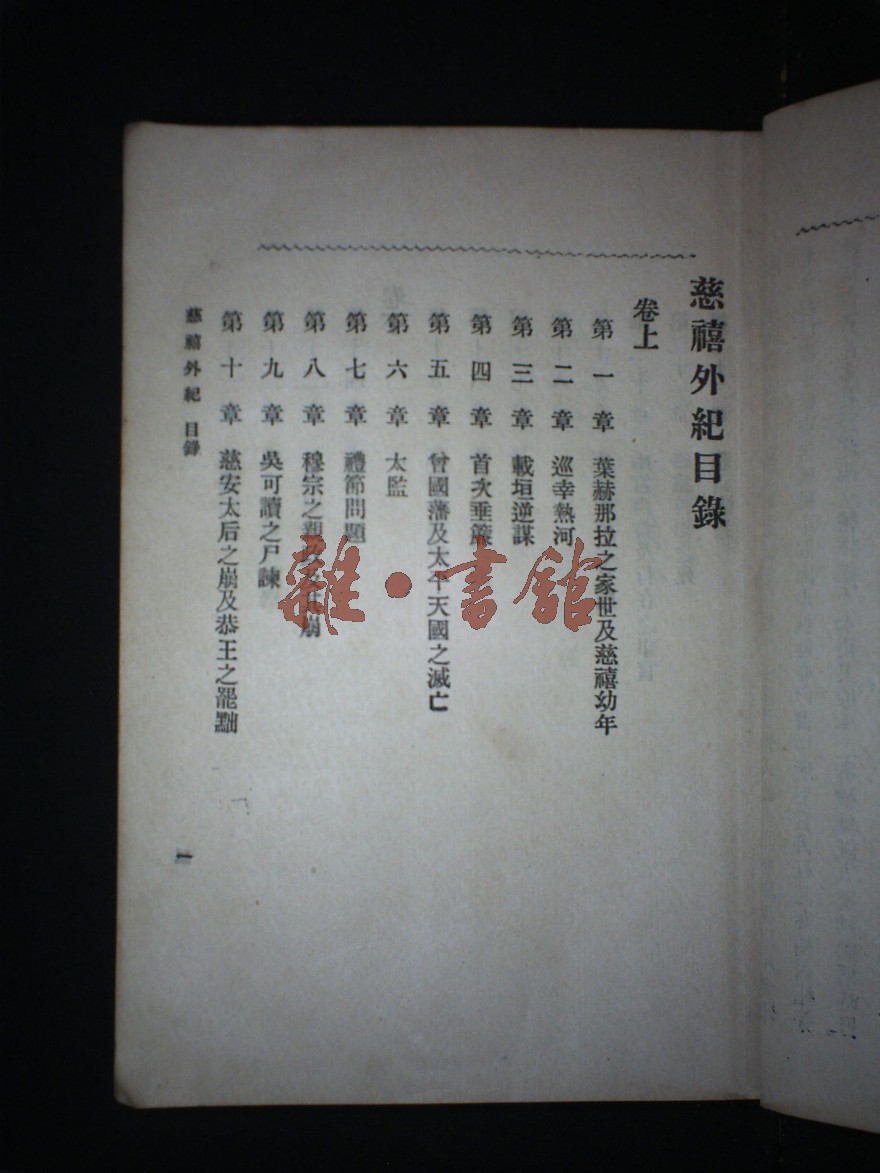 慈禧外紀目錄
卷上
第一章 葉赫那拉之家世及慈禧幼年
第二章 巡幸熱河
第三章 載垣逆謀
第四章 首次垂簾
第五章 曾國藩及太平天國之滅亡
第六章 太監
第七章 禮節問題
第八章 穆宗之親政及其崩
第九章 吳可讀之尸諫
第十章 慈安太后之崩及恭王之罷黜
慈禧外紀 目錄
一
雜·書館